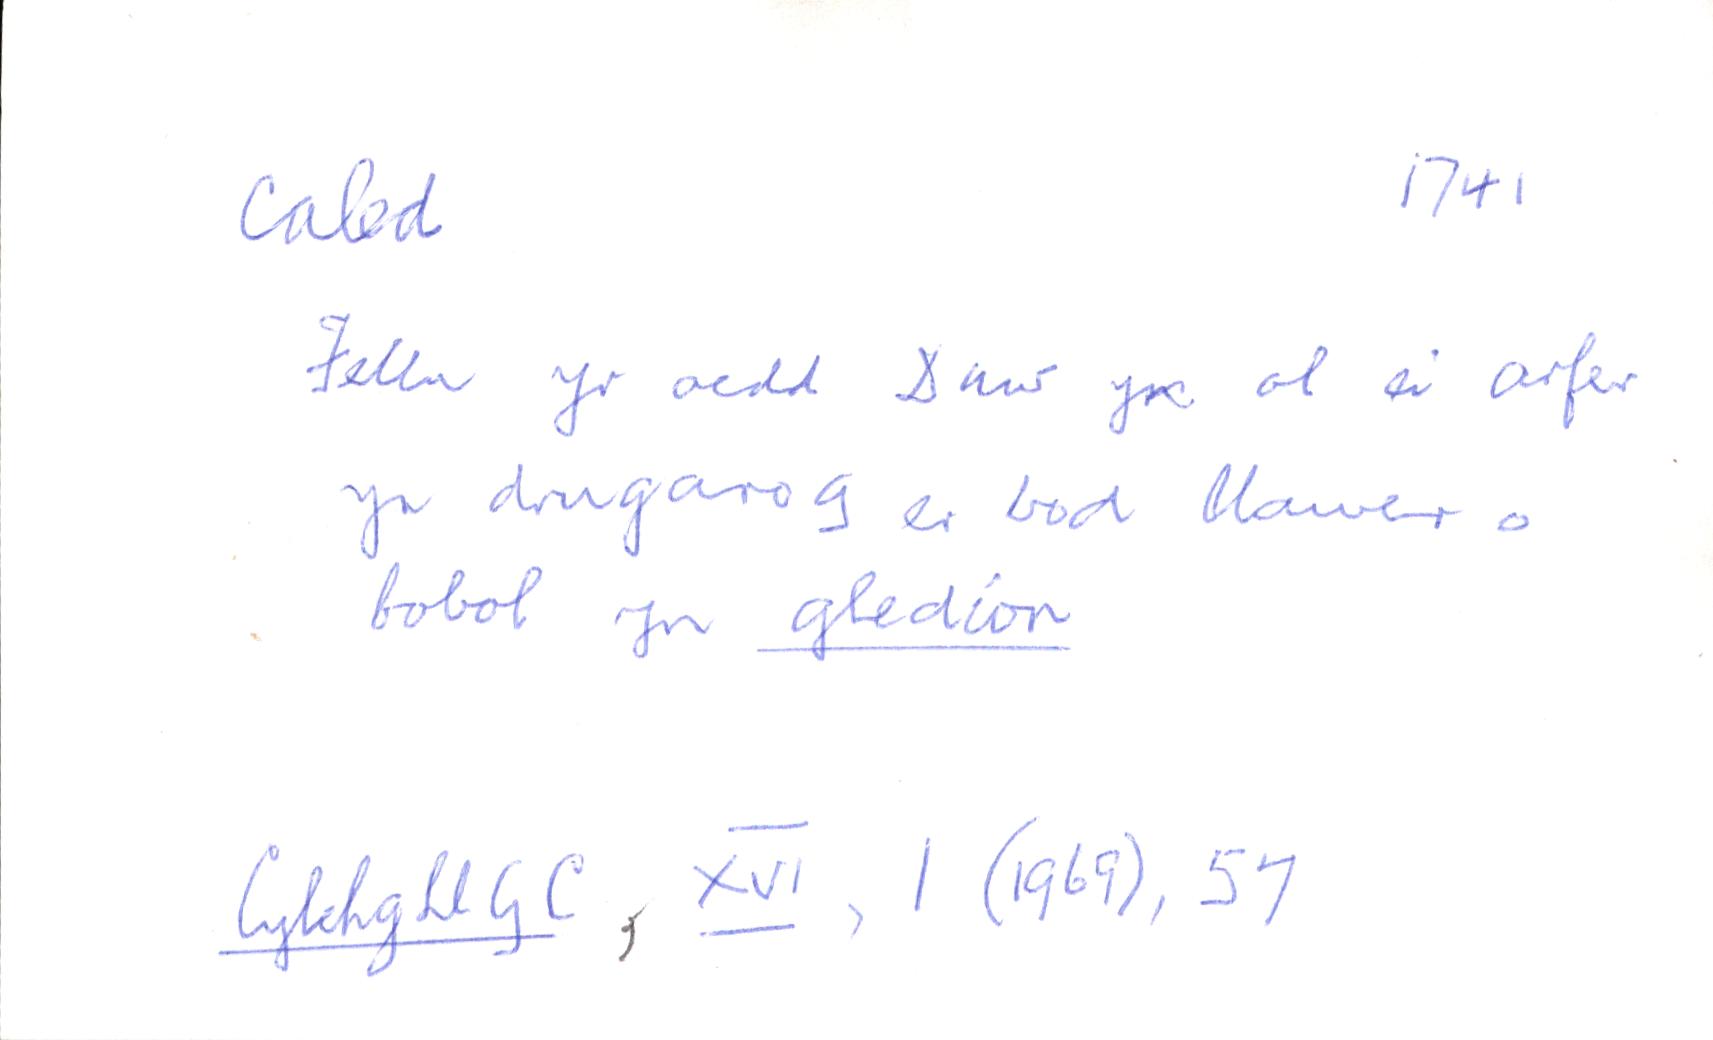 Caled 1741
Fella yr oedd Duw yn ol ei arfer
yn drugarog er bod llawer o
bobol yn gledion
CylchgLlGC, XVI, 1 (1969), 57